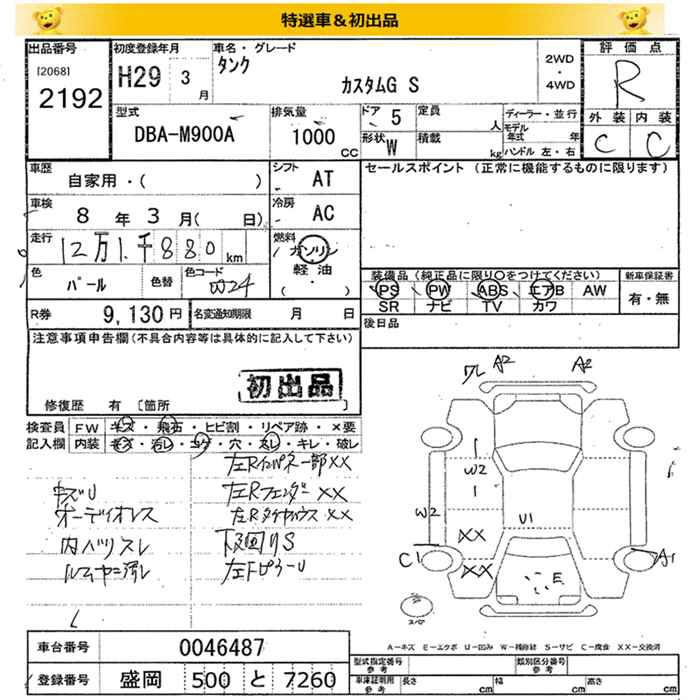 特選車＆初出品
出品番号
[2068]
2192
初度登録年月
H29 3月
車名・グレード
タンク
カスタムG S
2WD・4WD
評価点
R
外装 内装
C C
型式
DBA-M900A
排気量
1000 CC
ドア 5
形状 W
定員 人
積載 kg
ディーラー・並行
モデル年式 年
ハンドル 左・右
車歴
自家用・( )
シフト AT
車検
8年3月( 日)
冷房 AC
走行
12万1千880km
燃料
ガソリン
軽油
( ・ )
色
パール
色替
色コード
W24
R券 9,130円
名変通知期限 月 日
セールスポイント (正常に機能するものに限ります)
装備品 (純正品に限り○をつけてください)
PS PW ABS エアB AW
SR ナビ TV カワ
新車保証書
有・無
後日品
注意事項申告欄(不具合内容等は具体的に記入して下さい)
初出品
修復歴 有 [箇所
検査員記入欄
FW キズ・飛石・ヒビ割・リペア跡・×要
内装 キズ・汚レ・コゲ・穴・スレ・キレ・破レ
左Rインパネ一部XX
キズU
左RフェンダーXX
オーディオレス
左RタイヤハウスXX
内ハリスレ
下回りS
ルームヤニ汚レ
左FピラーU
ワレ A2 A2
W2
W2
U1
XX
XX
C1
A1
E
スペア
A－キズ E－エクボ U－凹み W－補修跡 S－サビ C－腐食 XX－交換済
車台番号 0046487
登録番号 盛岡 500 と 7260
型式指定番号 参考
類別区分番号 参考
車庫証明用 参考
長さ cm
幅 cm
高さ cm